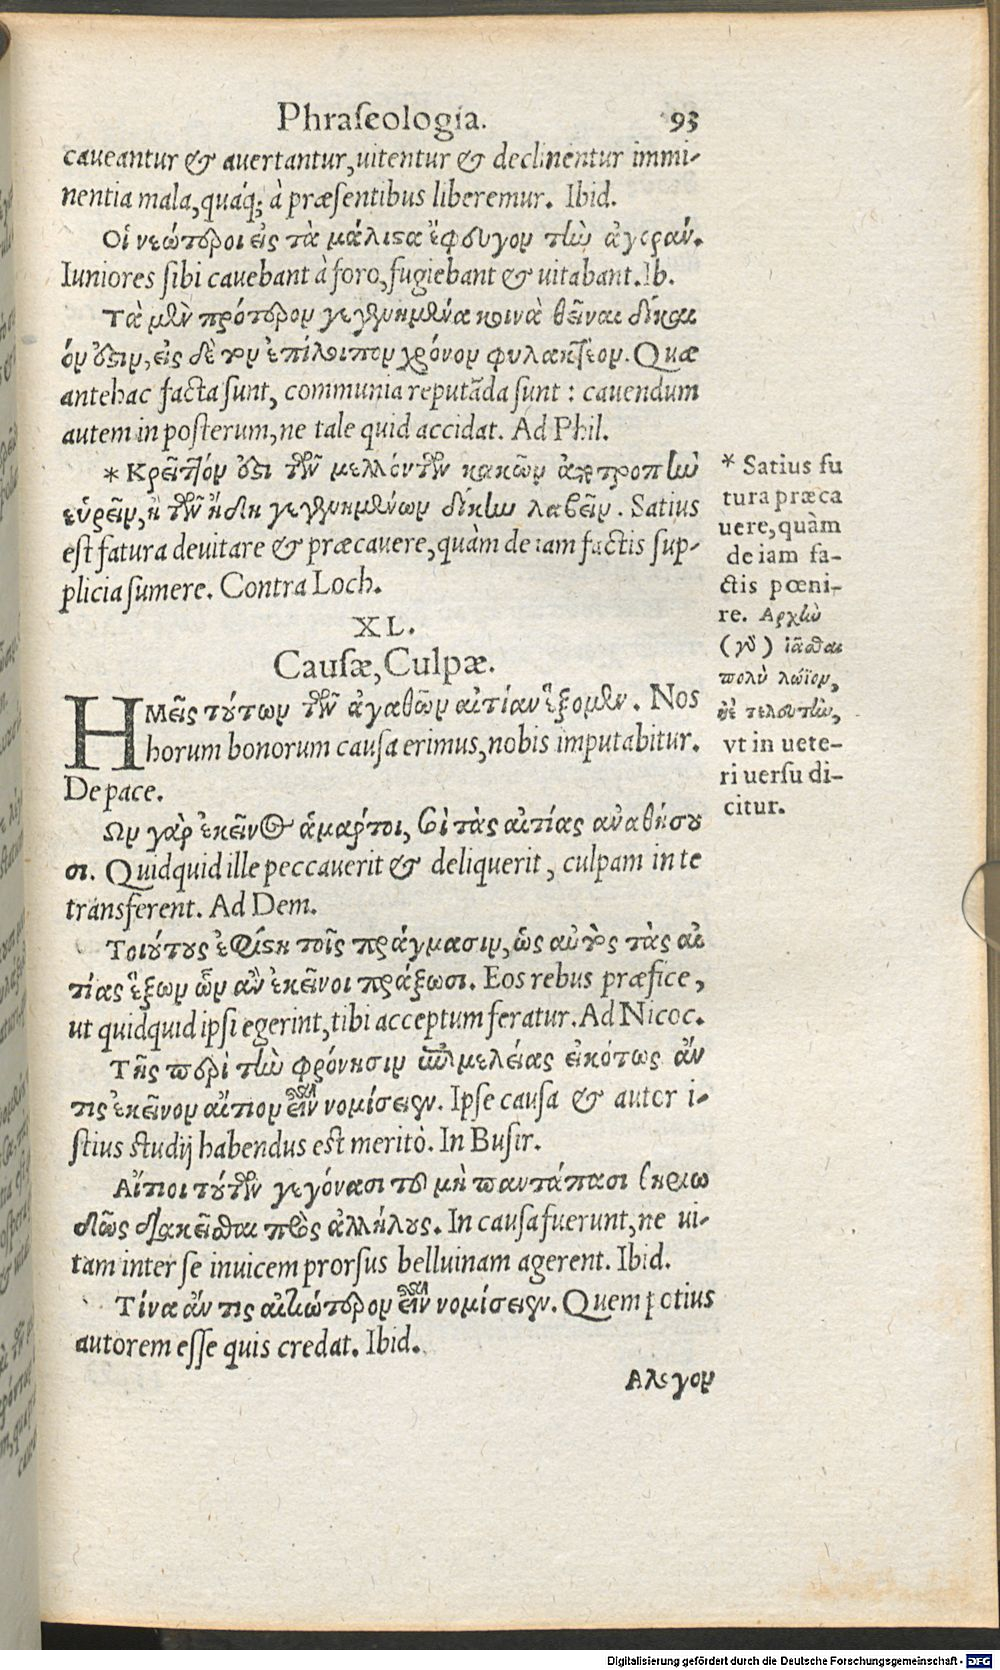 Phraſeologia. 93
caveantur & avertantur, uitentur & declinentur immi-
nentia mala, quáq; à præſentibus liberemur. Ibid.
Οἱ νεώτεροι εἰς τὰ μάλιϛα ἔφευγον τὴν ἀγοράν.
Iuniores ſibi cavebant à foro, fugiebant & uitabant. Ib.
Τὰ μὲν πρότερον γεγενημένα κοινὰ θεῖναι δίκαι
όν ὅϛιν, εἰς δὲ τὸν ἐπίλοιπον χρόνον φυλακτέον. Quæ
antehac facta ſunt, communia reputãda ſunt : cauendum
autem in poſterum, ne tale quid accidat. Ad Phil.
* Κρεῖττόν ὅϛι τῶν μελλόντων κακῶν ἀποτροπὴν
εὑρεῖν, ἢ τῶν ἤδη γεγενημένων δίκην λαβεῖν. Satius
eſt fatura deuitare & præcauere, quàm de iam factis ſup-
plicia ſumere. Contra Loch.
* Satius fu
tura præca
uere, quàm
de iam fa-
ctis pœni-
re. Αρχὴν
(γὸ) ἰᾶσθαι
πολὺ λώϊον,
ἠὲ τελευτὴν,
vt in uete-
ri uerſu di-
citur.
XL.
Cauſæ, Culpæ.
ΗΜεῖς τούτων τῶν ἀγαθῶν αἰτίαν ἕξομεν. Nos
horum bonorum cauſa erimus, nobis imputabitur.
De pace.
Ων γὰρ ἐκεῖνος ἁμάρτοι, σοὶ τὰς αἰτίας αναθήσου
σι. Quidquid ille peccauerit & deliquerit, culpam in te
transferent. Ad Dem.
Τοιούτους ἐφίϛη τοῖς πράγμασιν, ὡς αὐτὸς τὰς αἰ
τίας ἕξων ὧν ἂν ἐκεῖνοι πράξωσι. Eos rebus præfice,
ut quidquid ipſi egerint, tibi acceptum feratur. Ad Nicoc.
Τῆς περὶ τὴν φρόνησιν ἐπιμελείας εἰκότως ἄν
τις ἐκεῖνον αἴτιον εἶναι νομίσειεν. Ipſe cauſa & autor i-
ſtius ſtudij habendus eſt meritò. In Buſir.
Αἴτιοι τούτων γεγόνασι τοῦ μὴ παντάπασι θηριω
δῶς διακεῖσθαι πρὸς ἀλλήλους. In cauſa fuerunt, ne ui-
tam inter ſe inuicem prorſus belluinam agerent. Ibid.
Τίνα ἄν τις αἰτιώτερον εἶναι νομίσειεν. Quem potius
autorem eſſe quis credat. Ibid.
Αλεγον